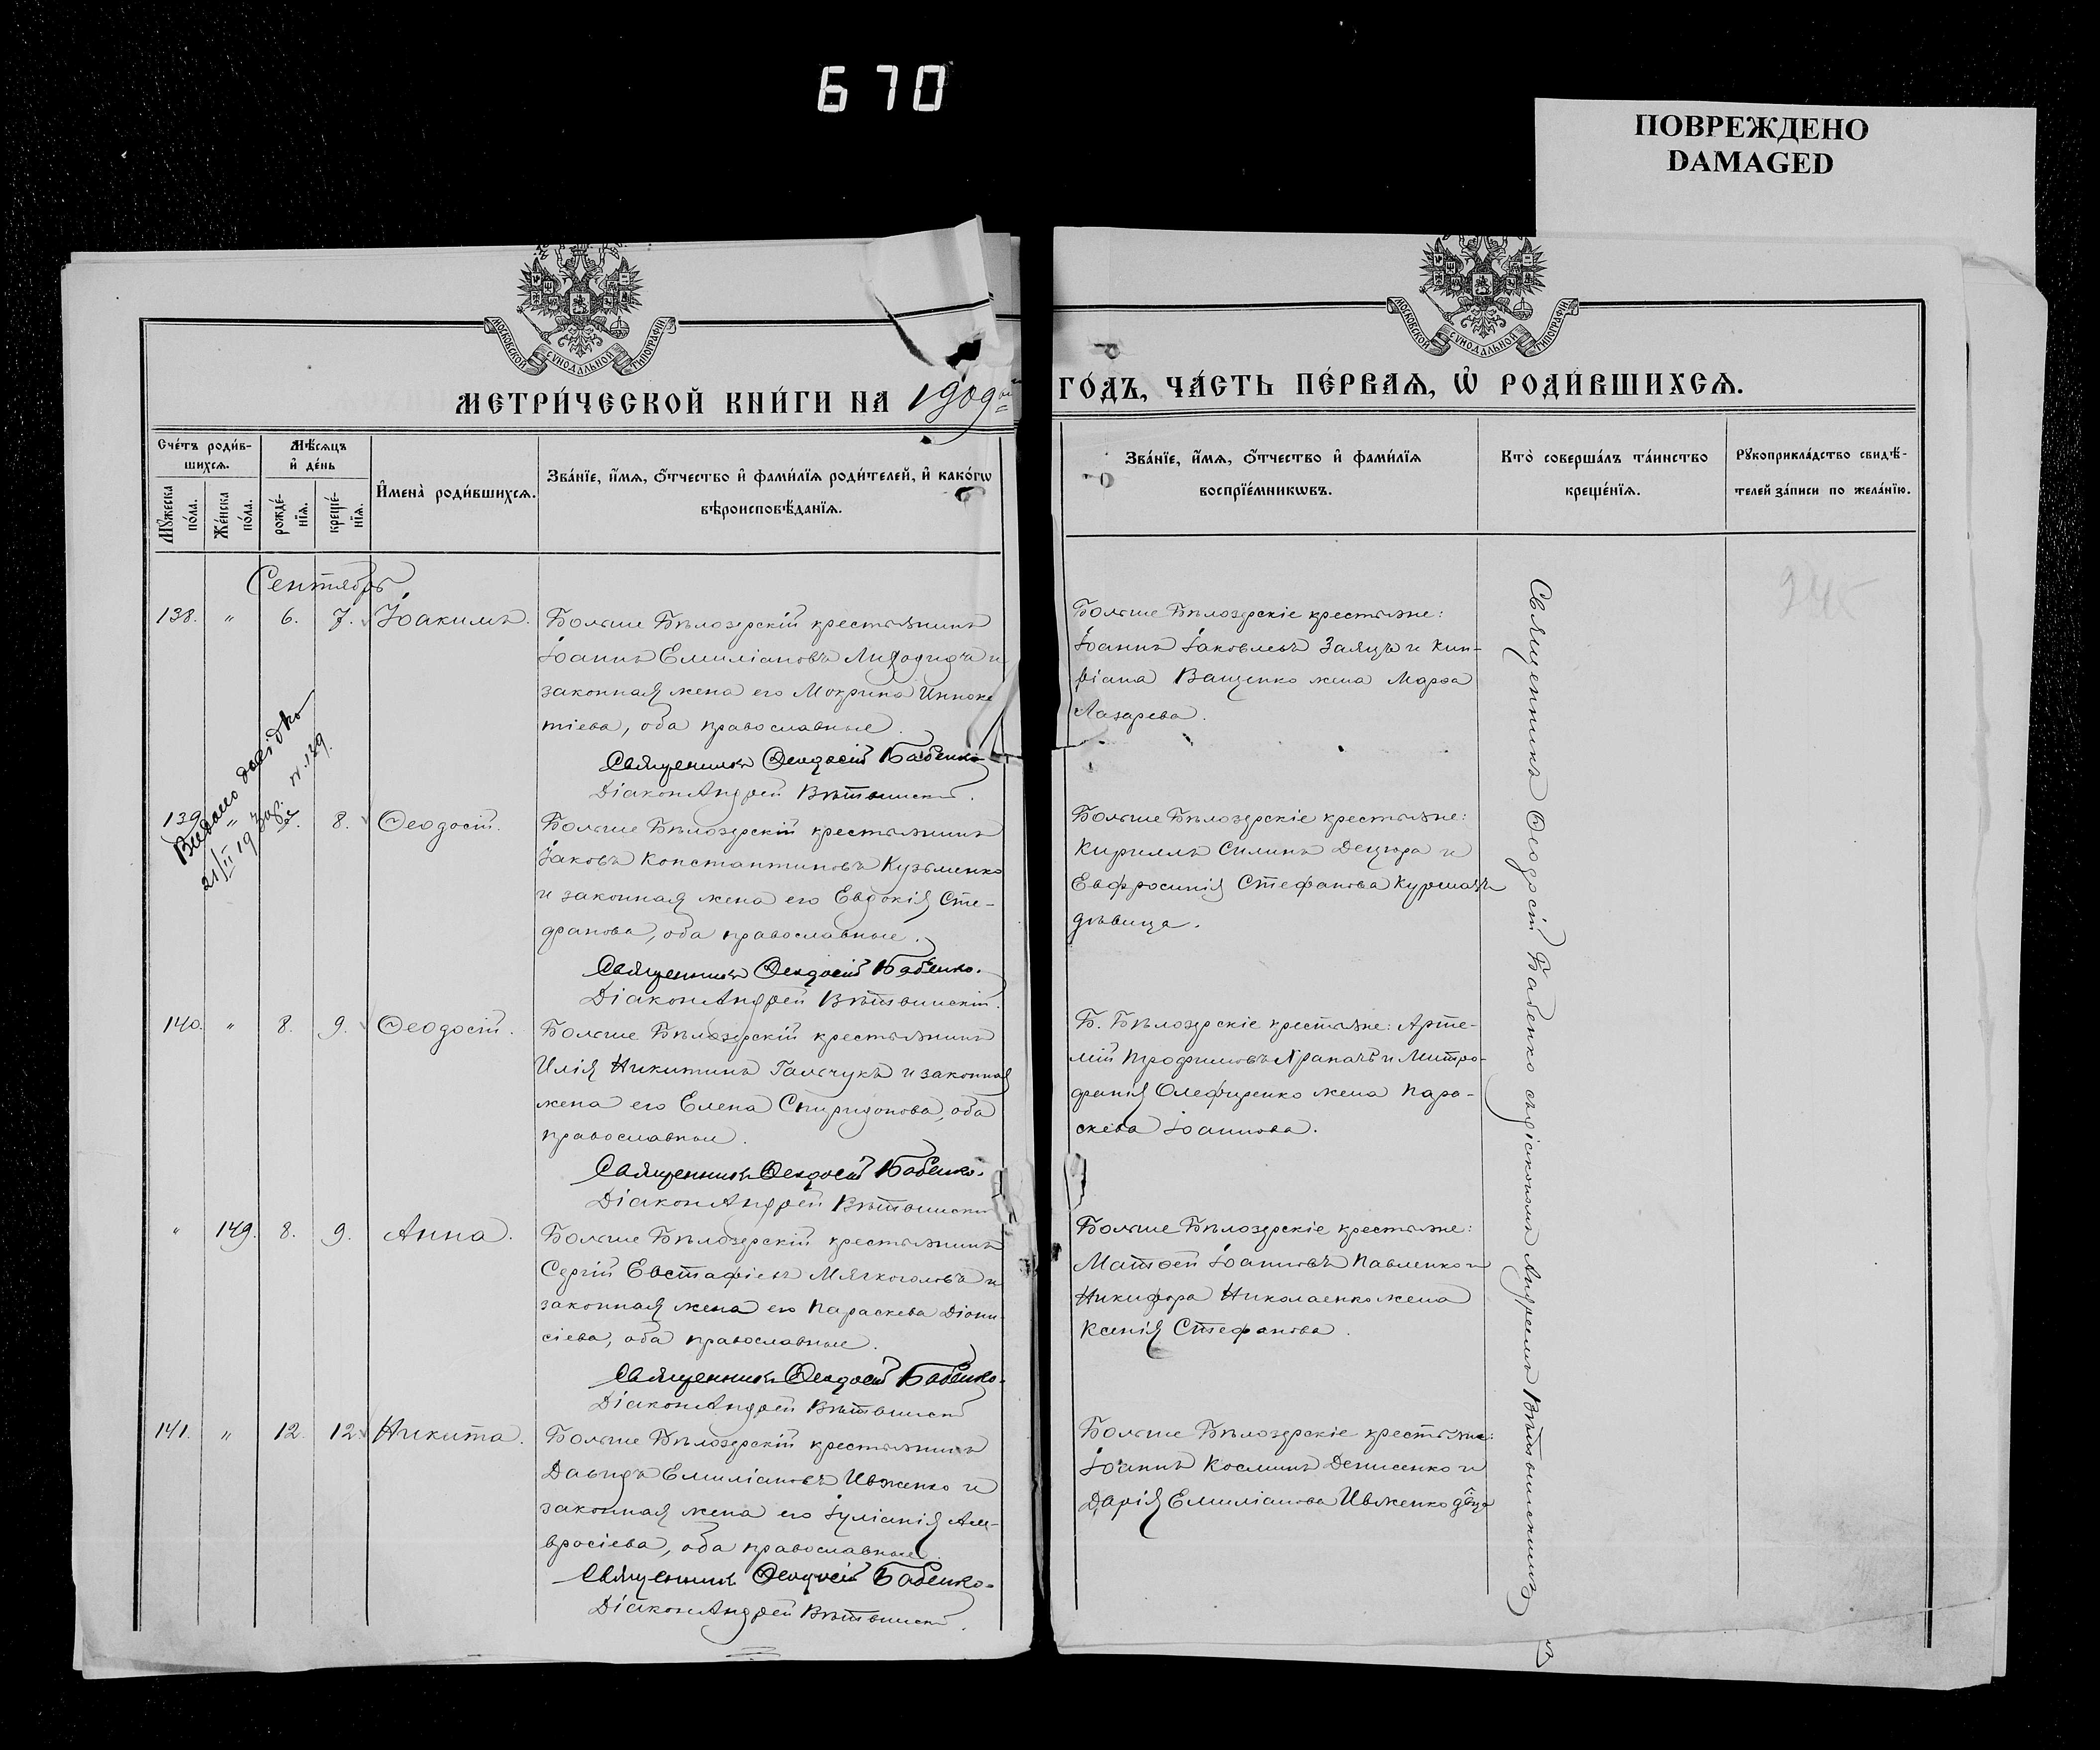 670
ПОВРЕЖДЕНО
DAMAGED
МОСКОВСКОЙ СѴНОДАЛЬНОЙ ТИПОГРАФІИ
МОСКОВСКОЙ СѴНОДАЛЬНОЙ ТИПОГРАФІИ
МЕТРИ́ЧЕСКОЙ КНИ́ГИ НА 1909ый
ГО́ДЪ, ЧА́СТЬ ПЕ́РВАѦ, Ѡ҆ РОДИ́ВШИХСѦ.
Сче́тъ роди́в-
шихсѧ.
Мѣ́сѧцъ
и҆ де́нь
Мꙋ́жеска
по́ла.
Же́нска
по́ла.
рожде́-
нїѧ.
креще́-
нїѧ.
И҆мена̀ роди́вшихсѧ.
Зва́нїе, и҆́мѧ, ѻ҆́тчество и҆ фами́лїѧ роди́телей, и҆ како́гѡ
вѣроисповѣ́данїѧ.
Зва́нїе, и҆́мѧ, ѻ҆́тчество и҆ фами́лїѧ
воспрїе́мникѡвъ.
Кто̀ соверша́лъ та́инство
креще́нїѧ.
Рꙋкоприкла́дство свидѣ́-
телей за́писи по жела́нїю.
Сентябрь
138. " 6. 7. Іоакимъ.
Больше Бѣлозерскій крестьянинъ
Іоаннъ Емиліановъ и
законная жена его Мокрина Иннокен
тіева, оба православные.
Священникъ Ѳеодосій Бабенко
Діаконъ Андрей Вѣтвинскій.
Больше Бѣлозерскіе крестьяне:
Іоаннъ Іаковлевъ Заяцъ и Кип-
ріана Ващенко жена Марѳа
Лазарева.
Видано довідко
21/II 19 за №. 139.
139. " 8. Ѳеодосій.
Больше Бѣлозерскій крестьянинъ
Іаковъ Константиновъ Кузьменко
и законная жена его Евдокія Сте-
фанова, оба православные.
Священникъ Ѳеодосій Бабенко.
Діаконъ Андрей Вѣтвинскій.
Больше Бѣлозерскіе крестьяне:
Кириллъ Силинъ Децюра и
Евфросинія Стефанова
дѣвица.
140. " 8. 9. Ѳеодосій.
Больше Бѣлозерскій крестьянинъ
Илія Никитинъ Галчукъ и законная
жена его Елена Спиридонова, оба
православные.
Священникъ Ѳеодосій Бабенко.
Діаконъ Андрей Вѣтвинскій
Б. Бѣлозерскіе крестьяне: Арте-
мій Трофимовъ и Митро-
фанія Олефиренко жена Пара-
скева Іоаннова.
" 149. 8. 9. Анна.
Больше Бѣлозерскій крестьянинъ
Сергій Евстафіевъ Мягкоголовъ и
законная жена его Параскева Діони-
сіева, оба православные.
Священникъ Ѳеодосій Бабенко.
Діаконъ Андрей Вѣтвинскій
Больше Бѣлозерскіе крестьяне:
Матѳей Іоанновъ Павленко и
Никифора Николаенко жена
Ксенія Стефанова.
141. " 12. 12. Никита.
Больше Бѣлозерскій крестьянинъ
Давидъ Емиліановъ Ивженко и
законная жена его Іуліанія Ам-
вросіева, оба православные.
Священникъ Ѳеодосій Бабенко.
Діаконъ Андрей Вѣтвинскій.
Больше Бѣлозерскіе крестьяне:
Іоаннъ Косминъ Денисенко и
Дарія Емиліанова Ивженко дѣвца
Священникъ Ѳеодосій Бабенко съ діакономъ Андреемъ Вѣтвинскимъ